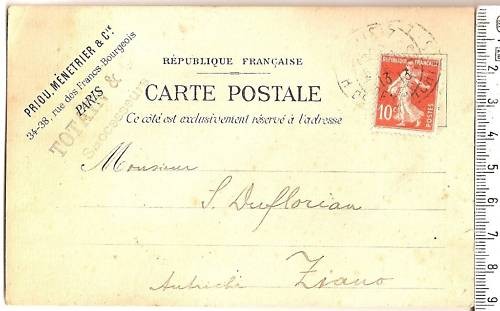 PRIOU, MÉNETRIER & Cie
34-38, rue des Francs-Bourgeois
PARIS
Successeurs
RÉPUBLIQUE FRANÇAISE
CARTE POSTALE
Ce côté est exclusivement réservé à l'adresse
REPUBLIQUE FRANÇAISE
10c
POSTES
Monsieur
S. Duflorian
Autriche Ziano
1 2 3 4 5 6 7 8 9